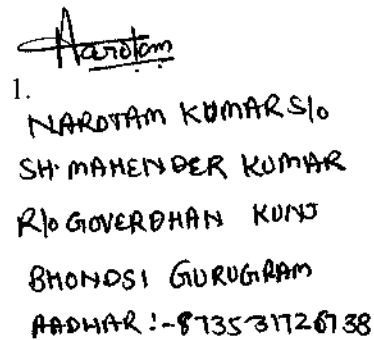 Narotam
1.
NAROTAM KUMAR S/o
SH. MAHENDER KUMAR
R/o GOVERDHAN KUNJ
BHONDSI GURUGRAM
AADHAR :-